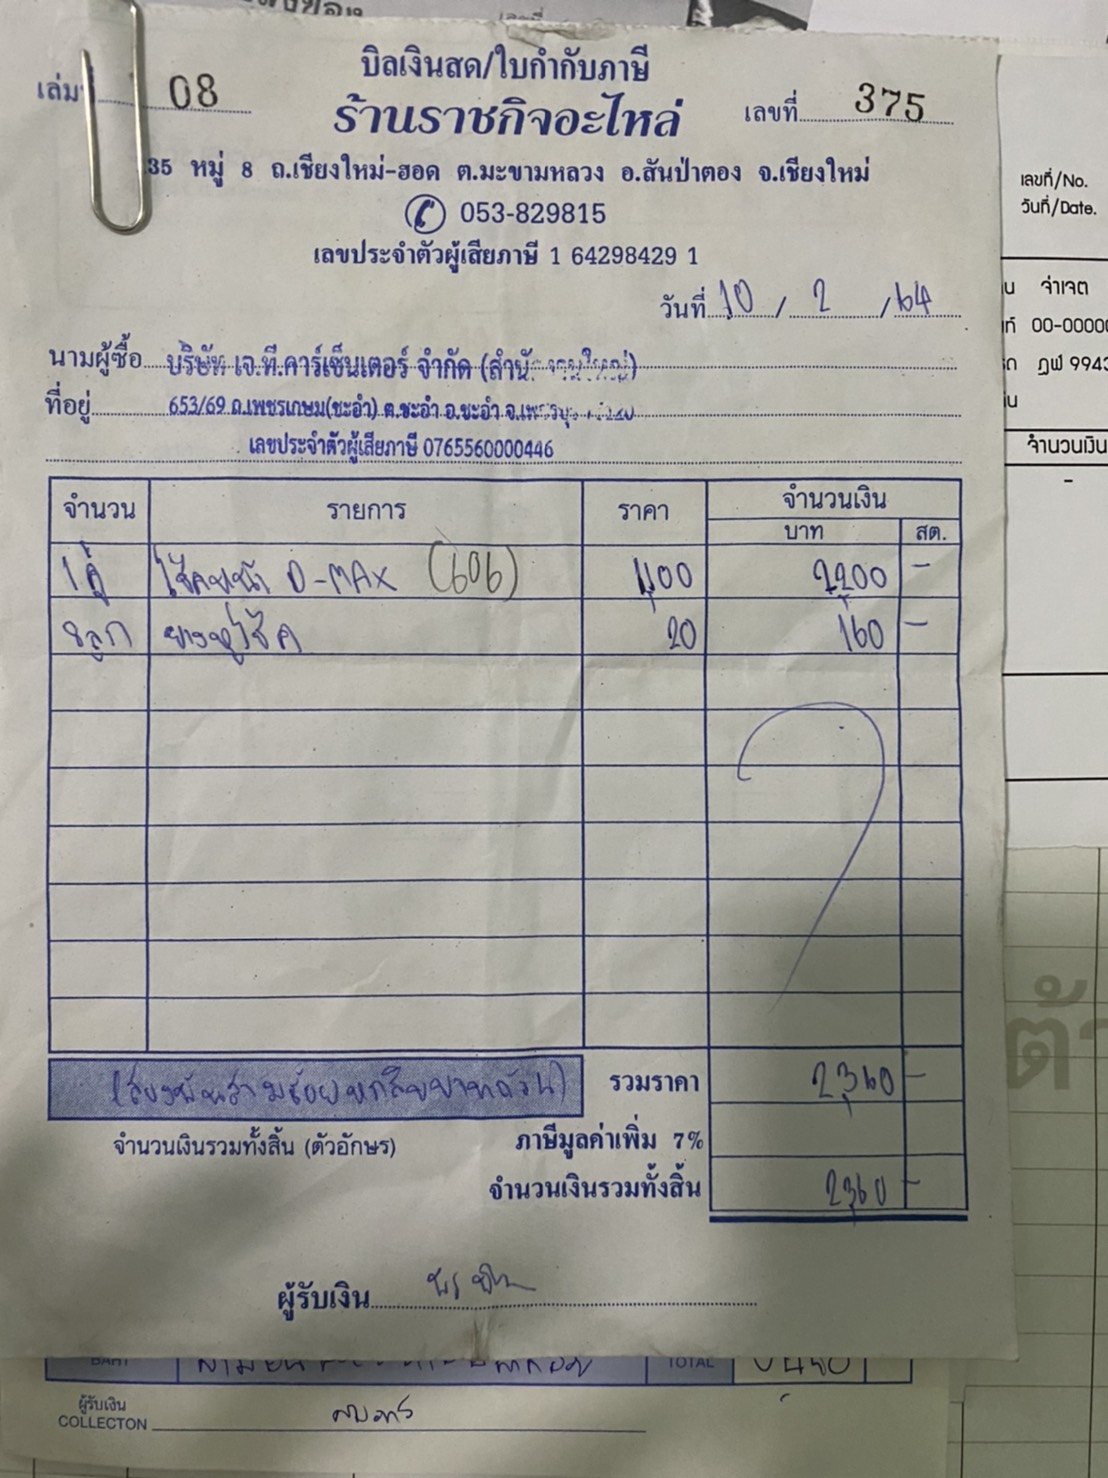 บิลเงินสด/ใบกำกับภาษี
เล่มที่ 08
ร้านราชกิจอะไหล่
เลขที่ 375
35 หมู่ 8 ถ.เชียงใหม่-ฮอด ต.มะขามหลวง อ.สันป่าตอง จ.เชียงใหม่
053-829815
เลขประจำตัวผู้เสียภาษี 1 64298429 1
วันที่ 10 / 2 / 64
นามผู้ซื้อ บริษัท เจ.ที.คาร์เซ็นเตอร์ จำกัด (สำนักงานใหญ่)
ที่อยู่ 653/69 ถ.เพชรเกษม(ชะอำ) ต.ชะอำ อ.ชะอำ
เลขประจำตัวผู้เสียภาษี 0765560000446
จำนวน รายการ ราคา จำนวนเงิน
บาท สต.
1 คู่ โช๊คหน้า D-MAX (606) 1,100 2,200 -
8 ลูก ยางหูโช๊ค 20 160 -
(สองพันสามร้อยหกสิบบาทถ้วน) รวมราคา 2,360 -
จำนวนเงินรวมทั้งสิ้น (ตัวอักษร) ภาษีมูลค่าเพิ่ม 7%
จำนวนเงินรวมทั้งสิ้น 2,360 -
ผู้รับเงิน
TOTAL
ผู้รับเงิน
COLLECTON
เลขที่/No.
วันที่/Date.
จำเจต
00-0000
ฎฬ 9943
จำนวนเงิน
-